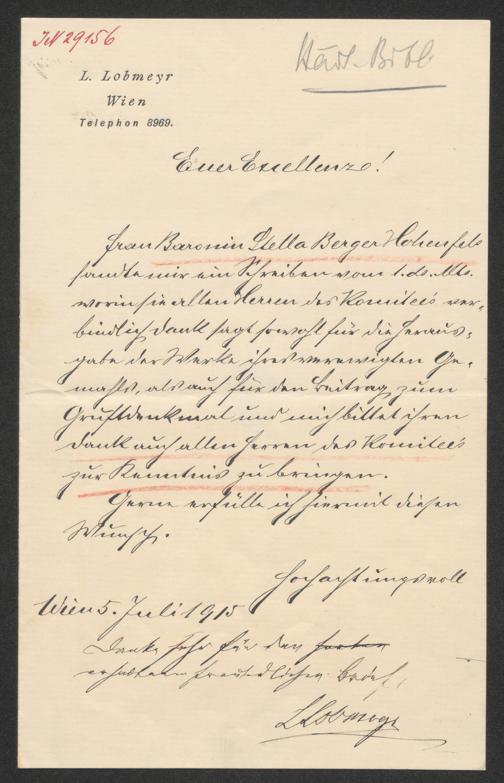 IN 29156
Städt. Bibl.
L. Lobmeyr
Wien
Telephon 8969.
Euer Excellenz!
Frau Baronin Stella Berger Hohenfels
sandte mir ein Schreiben vom 1. ds. Mts.
worin sie allen Herren des Komitees ver-
bindlich Dank sagt sowohl für die Heraus-
gabe der Werke ihres verewigten Ge-
mahls, als auch für den Beitrag zum
Gruftdenkmal und mich bittet ihren
Dank auch allen Herren des Komitees
zur Kenntnis zu bringen.
Gerne erfülle ich hiermit diesen
Wunsch.
Hochachtungsvoll
Wien 5. Juli 1915
Danke sehr für den
erhaltenen freundlichen Brief,
LLobmeyr